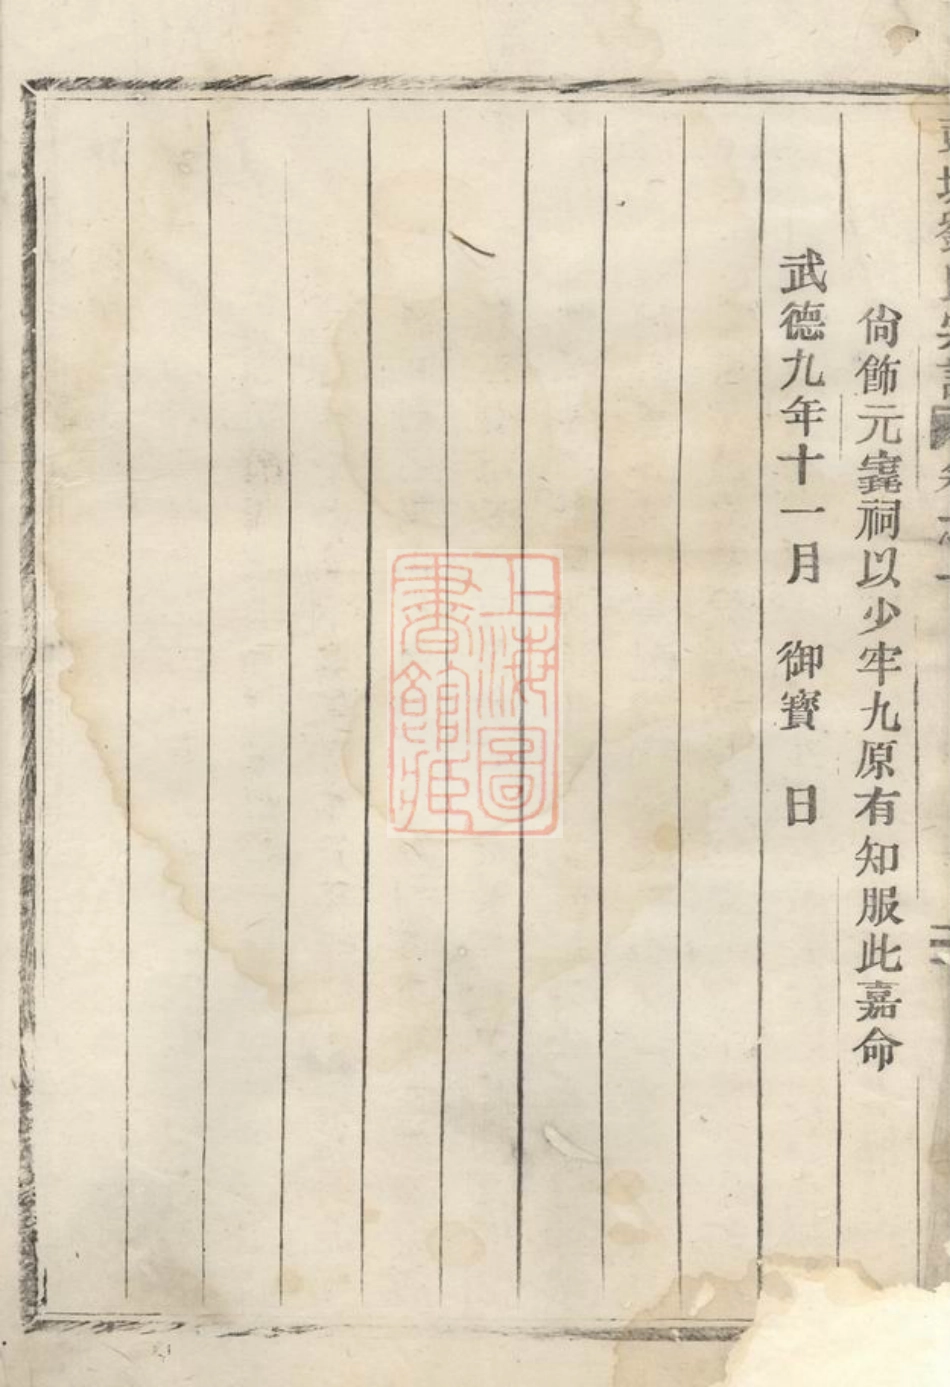 尙飾元寯祠以少牢九原有知服此嘉命
武德九年十一月 御寳 日
上海圖
書館藏